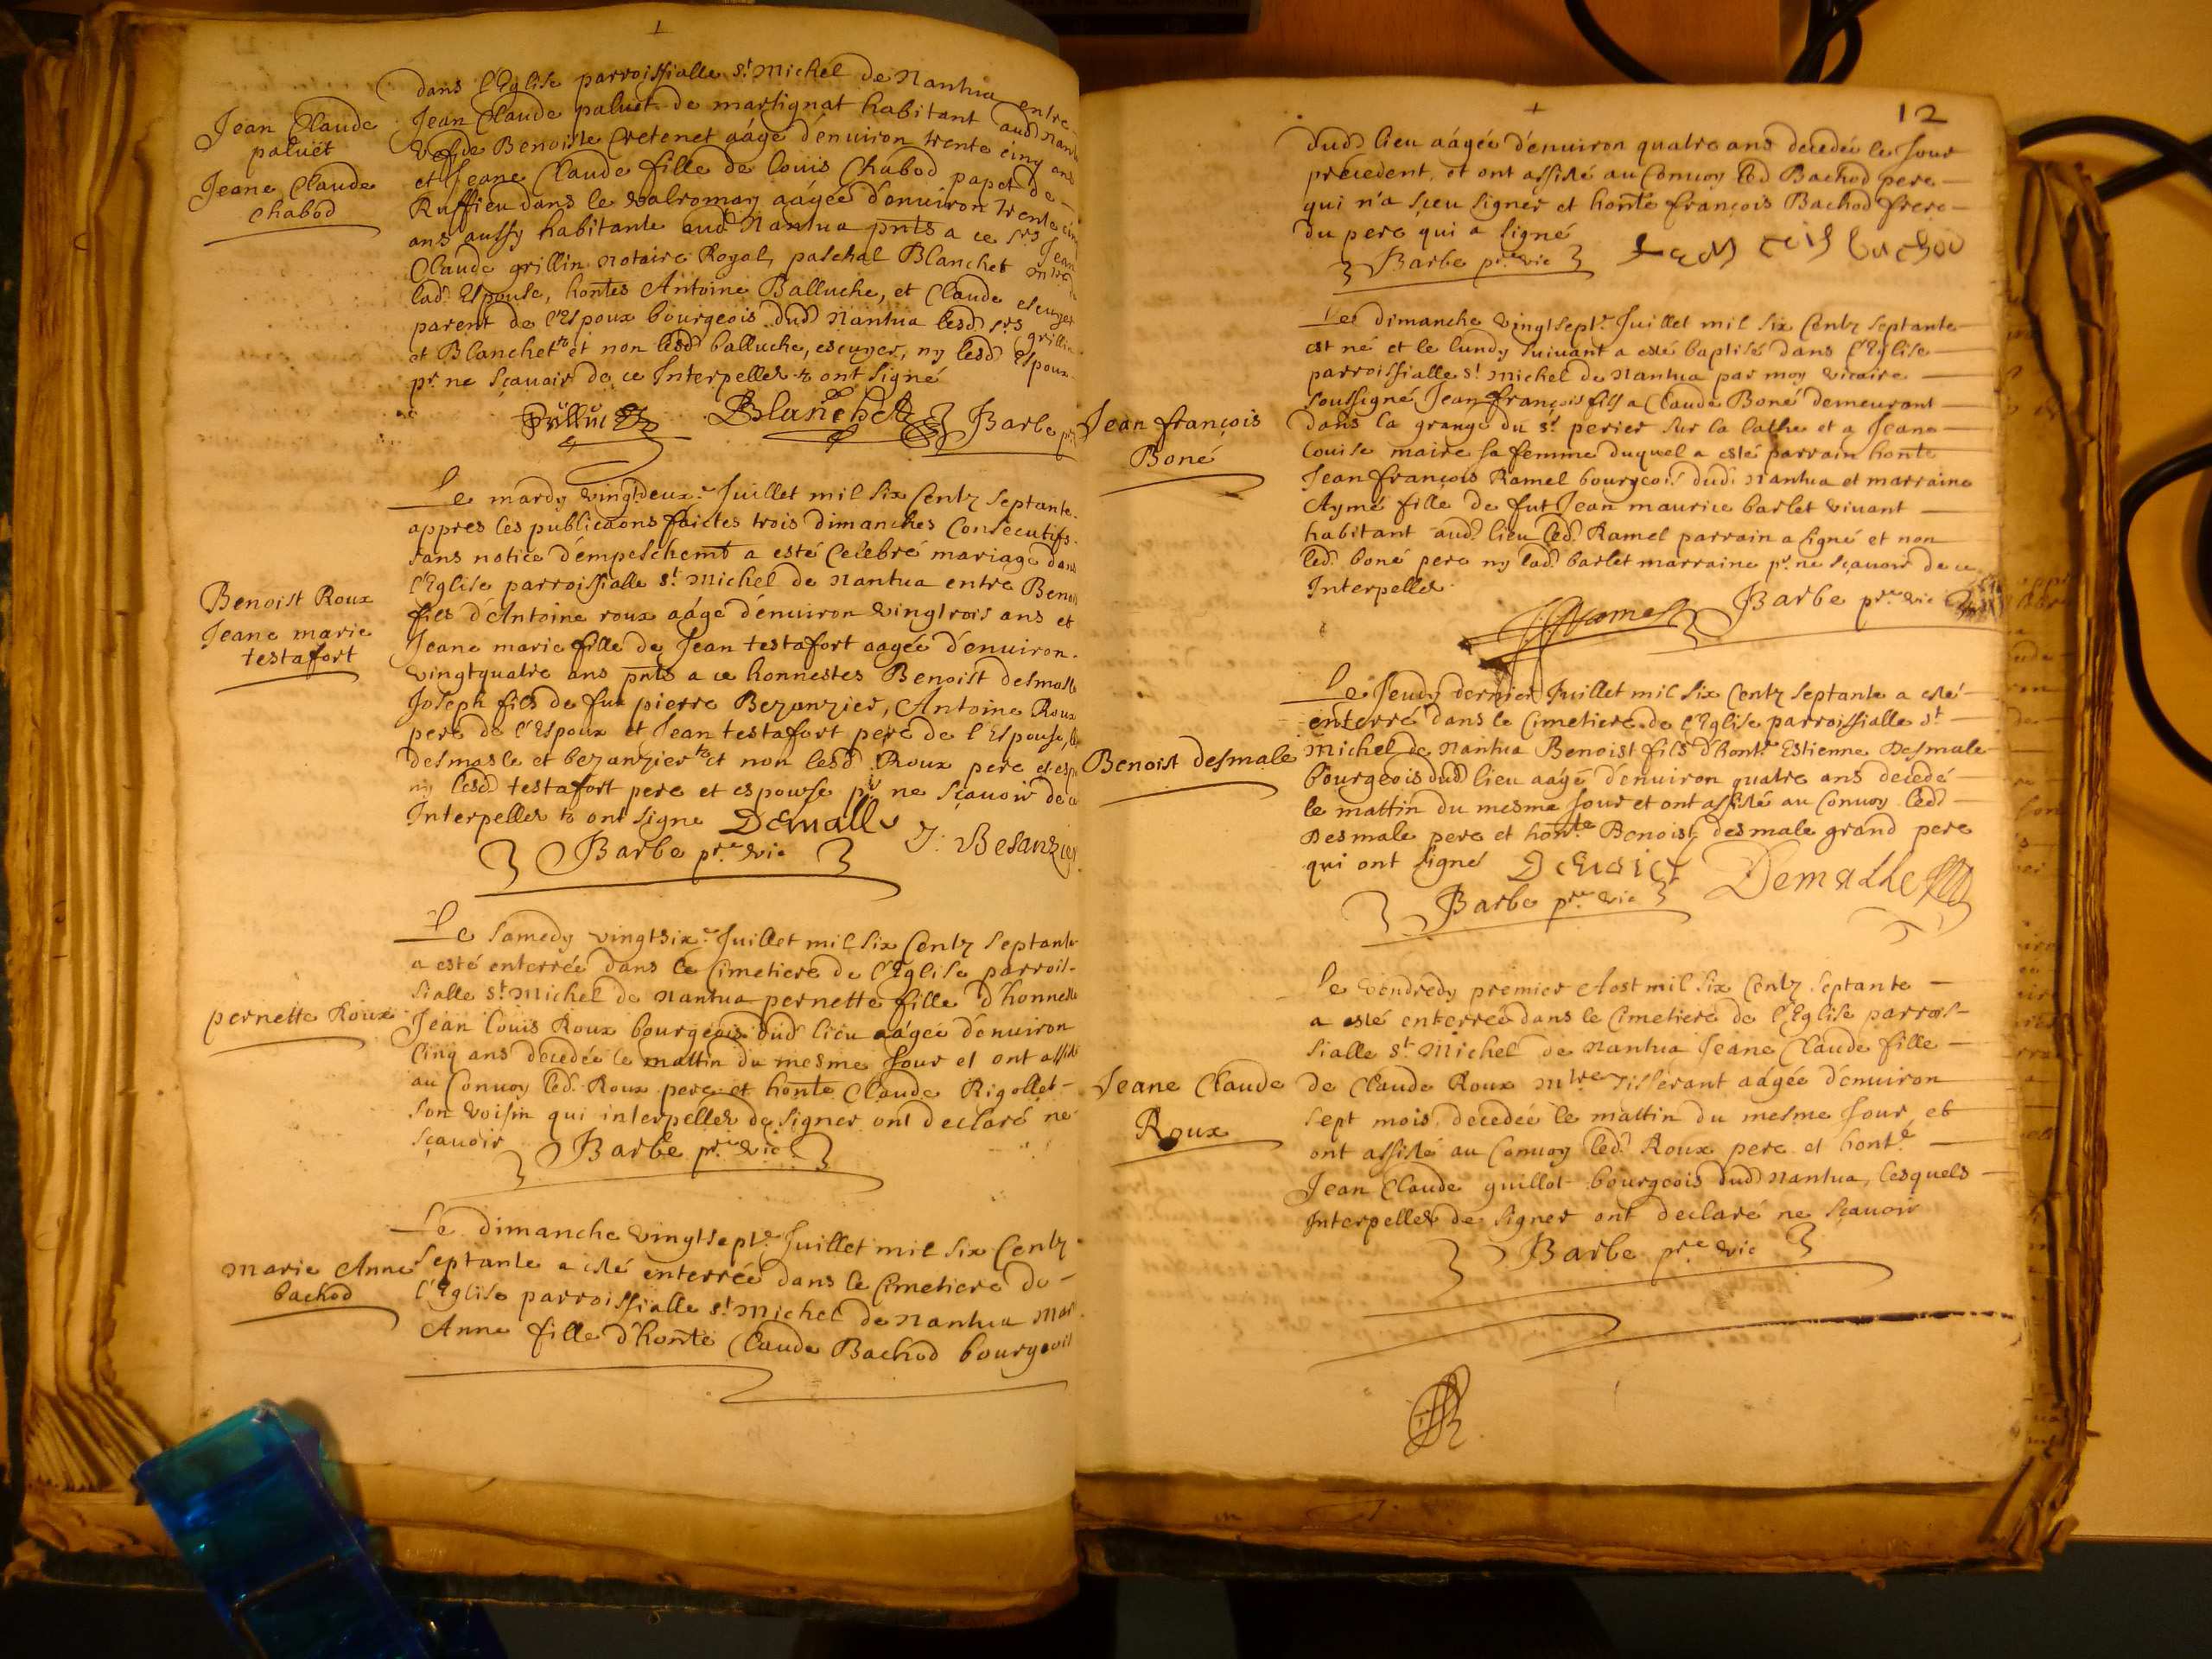 dans l'Eglise parroissialle st Michel de Nantua entre
Jean Claude paluet de martignat habitant aud Nantu
Vefde Benoiste Cretenet aágé d'enuiron trente cinq ans
et Jeane Claude fille de Louis Chabod papet de
Ruffieu dans le Valromay aágée d'enuiron trente cin
ans aussy habitante aud Nantua pnts a ce srs Jean
Claude grillin notaire Royal, paschal Blanchet mtre d
lad. Espouse, hontes Antoine Balluche, et Claude escuyer
parent de l'Espoux bourgeois dud Nantua lesd srs grillin
et Blanchet et non lesd balluche, escuyer, ny lesd Espoux
pr ne sçauoir de ce Interpellez ont signé
Blanchet Barbe pr
Jean Claude
paluet
Jeane Claude
chabod
Le mardy vingtdeux.e Juillet mil six Centz septante
appres les publicãons faictes trois dimanches Consecutifs
sans notice d'empeschemt a esté Celebré mariage dans
l'Eglise parroissialle st Michel de Nantua entre Benoi
fils d'Antoine roux aágé d'enuiron vingtrois ans et
Jeane marie fille de Jean testafort aagée d'enuiron
vingtquatre ans pnts a ce honnestes Benoist desmasle
Joseph fils de fut pierre Bezanzier, Antoine Roux
pere de l'Espoux et Jean testafort pere de l'Espouse, l
desmasle et bezanzier et non lesd Roux pere et esp
ny lesd testafort pere et espouse pr ne sçauoir de c
Interpellez ont signe Demalle J. Besanzier
Barbe pr.e vic
Benoist Roux
Jeane marie
testafort
Le samedy vingtsix.e Juillet mil six Centz septante
a esté enterrée dans le Cimetiere de l'Eglise parrois-
sialle st Michel de Nantua pernette fille d'honneste
Jean louis Roux bourgeois dud lieu aágée d'enuiron
Cinq ans decedée le mattin du mesme Jour et ont assisté
au Conuoy led. Roux pere et honte Claude Rigollet
son voisin qui interpellez de signer ont declaré ne
sçauoir Barbe pr.e vic
pernette Roux
Le dimanche vingtsept.e Juillet mil six Centz
septante a esté enterrée dans le Cimetiere de
l'Eglise parroissialle st Michel de Nantua mar
Anne fille d'honte Claude Bachod bourgeois
marie Anne
bachod
12
dud lieu aágée d'enuiron quatre ans decedée le Jour
precedent, et ont assisté au Conuoy led Bachod pere
qui n'a sçeu signer et honte françois Bachod frere
du pere qui a signé
Barbe pr.e vic
Le dimanche vingtsept.e Juillet mil six Centz septante
est né et le lundy suiuant a esté baptisé dans l'Eglise
parroissialle st Michel de Nantua par moy vicaire
soussigné Jean françois fils a Claude Boné demeurant
dans la grange du sr perier sur la lathe et a Jeane
Louise maire sa femme duquel a esté parrain honte
Jean françois Ramel bourgeois dud. Nantua et marraine
Aymé fille de fut Jean maurice barlet viuant
habitant aud. lieu led. Ramel parrain a signé et non
led. boné pere ny lad. barlet marraine pr ne sçauoir de ce
Interpellez
Ramel Barbe pr.e vic
Jean françois
Boné
Le Jeudy dernier Juillet mil six Centz septante a esté
enterré dans le Cimetiere de l'Eglise parroissialle st
Michel de Nantua Benoist fils d'honte Estienne Desmale
bourgeois dud lieu aagé d'enuiron quatre ans decedé
le mattin du mesme Jour et ont assisté au Conuoy led
Desmale pere et honte Benoist desmale grand pere
qui ont signé Demalle
Barbe pr.e vic
Benoist desmale
Le Vendredy premier Aost mil six Centz septante
a esté enterrée dans le Cimetiere de l'Eglise parrois-
sialle st Michel de Nantua Jeane Claude fille
de Claude Roux mtre tisserant aágée d'enuiron
sept mois, decedée le mattin du mesme Jour, et
ont assisté au Conuoy led. Roux pere et honte
Jean Claude guillot bourgeois dud Nantua, lesquels
Interpellez de signer ont declaré ne sçauoir
Barbe pr.e vic
Jeane Claude
Roux